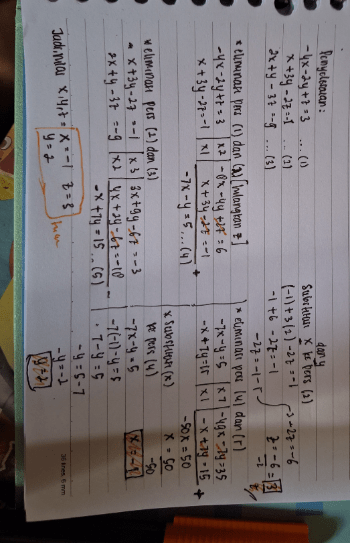 Penyelesaian:
-4x-2y+z=3 ... (1)
x+3y-2z=-1 ... (2)
2x+y-3z=-9 ... (3)
* eliminasi pers (1) dan (2) [hilangkan z]
-4x-2y+z=3 |x2| -8x-4y+2z=6
x+3y-2z=-1 |x1| x+3y-2z=-1 +
-7x-y=5 ... (4)
* eliminasi pers (2) dan (3)
x+3y-2z=-1 |x3| 3x+9y-6z=-3
2x+y-3z=-9 |x2| 4x+2y-6z=-18 -
-x+7y=15 ... (5)
* eliminasi pers (4) dan (5)
-7x-y=5 |x7| -49x-7y=35
-x+7y=15 |x1| -x+7y=15 +
-50x=50
x=50
-50
x=-1
* substitusi (x)
ke pers (4)
-7x-y=5
-7(-1)-y=5
7-y=5
-y=5-7
-y=-2
y=2
Substitusi x
dan y
ke pers (2)
(-1)+3(2)-2z=-1
-1+6-2z=-1
-2z=-1-5
-2z=-6
z=-6
-2
=3
Jadi nilai x,y,z = x=-1 z=3
y=2